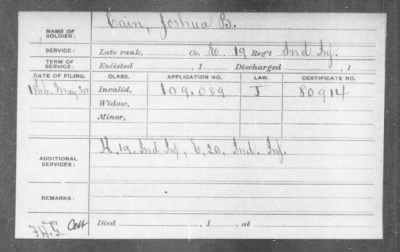 NAME OF SOLDIER: Cain, Joshua B.
SERVICE: Late rank, Co. K. 19 Reg't Ind Inf.
TERM OF SERVICE: Enlisted , 1 Discharged , 1
DATE OF FILING. CLASS. APPLICATION NO. LAW. CERTIFICATE NO.
May 30 Invalid, 109.089 J 80914
Widow,
Minor,
ADDITIONAL SERVICES: K, 19. Ind Inf, E, 20, Ind. Inf.
REMARKS:
Died , 1 , at